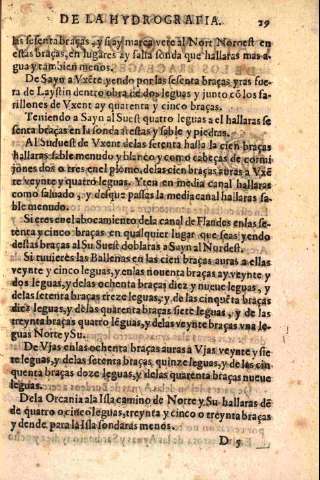 DE LA HYDROGRAFIA. 29
las sesenta braças, y si ay marca vete al Nort Noroest en
estas braças, en lugares ay falta sonda que hallaras mas a-
gua y tambien menos.
De Sayn a Vxẽte yendo por las sesenta braças yras fue
ra de Laystin dentro obra de dos leguas y junto cõ los fa-
rillones de Vxent ay quarenta y cinco braças.
Teniendo a Sayn al Suest quatro leguas a el hallaras se
senta braças en la sonda aristas y sable y piedras.
Al Suduest de Vxent de las setenta hasta la cien braças
hallaras sable menudo y blanco y como cabeças de cormi
jones dos o tres en el plomo, de las cien braças auras a Vxẽ
te veynte y quatro leguas. Yten en media canal hallaras
como saluado, y desque passas la media canal hallaras sa
ble menudo.
Si eres en el abocamiento de la canal de Flandes en las se-
tenta y cinco braças en qualquier lugar que seas yendo
destas braças al Su Suest doblaras a Sayn al Nordest.
Si tuuieres las Ballenas en las cien braças auras a ellas
veynte y cinco leguas, y en las nouenta braças ay veynte y
dos leguas, y de las ochenta braças diez y nueue leguas, y
de las setenta braças treze leguas, y de las cinquẽta braças
diez leguas, y de las quarenta braças siete leguas, y de las
treynta braças quatro leguas, y de las veynte braças vna le
guas Norte y Su.
De Vjas en las ochenta braças auras a Vjas veynte y sie
te leguas, y de las setenta braças, quinze leguas, y de las cin
quenta braças doze leguas, y de las quarenta braças nueue
leguas.
De la Orcania a la Isla camino de Norte y Su hallaras dẽ
de quatro o cinco leguas, treynta y cinco o treynta braças
y dende para la Isla sondaràs menos.
D 5